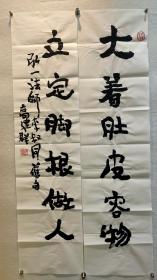 大着肚皮容物
立定脚根做人
弘一法师